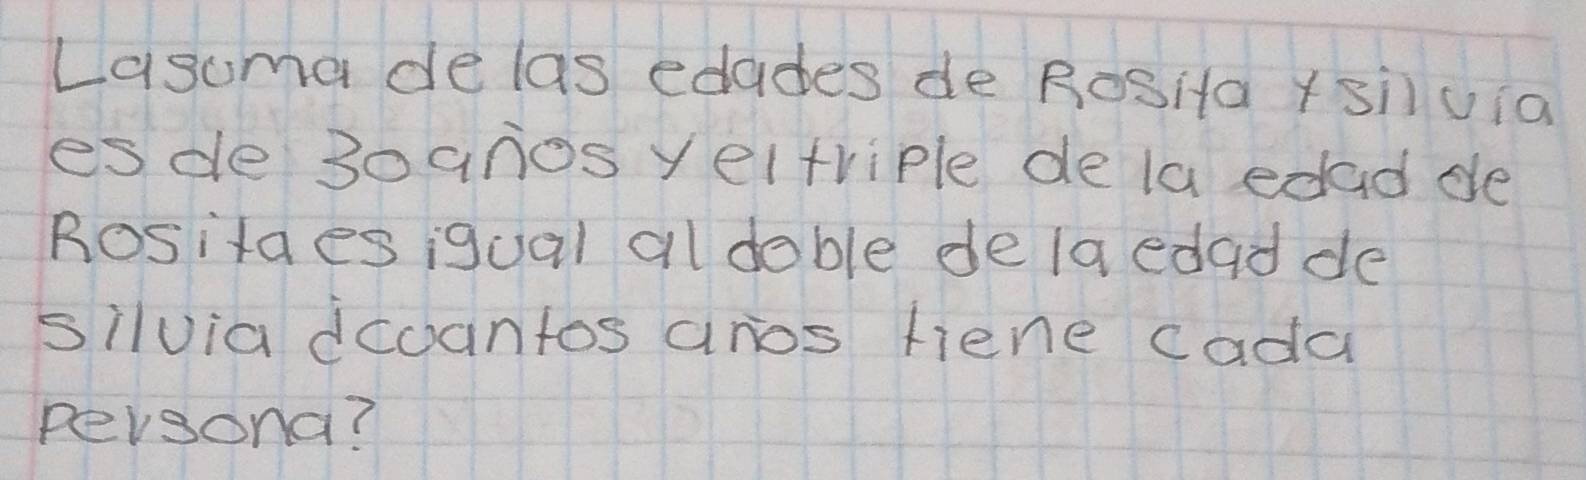 La suma de las edades de Rosita y silvia
es de 30 años y el triple de la edad de
Rosita es igual al doble de la edad de
silvia ¿cuantos años tiene cada
persona?